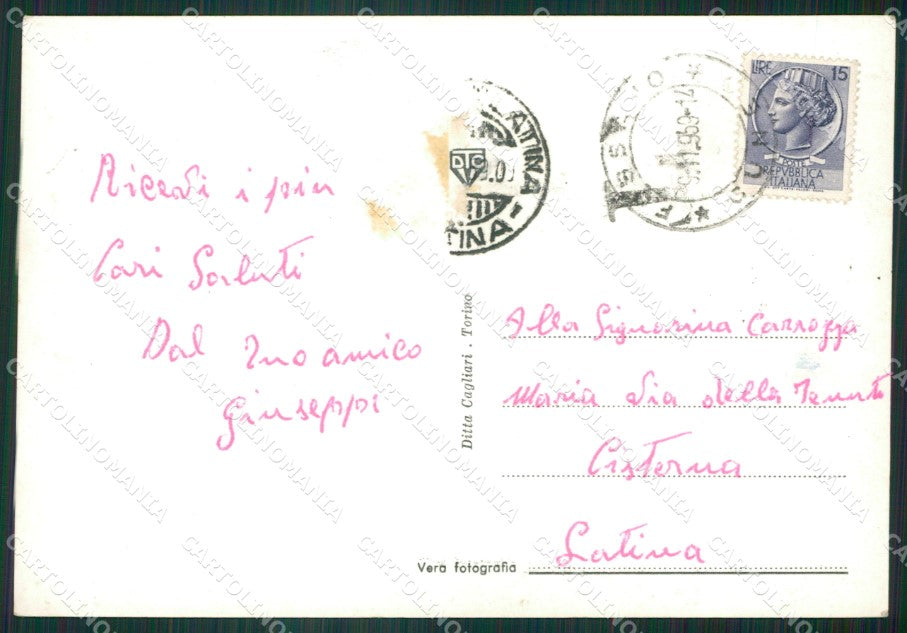 Ricevi i piu
Cari Saluti
Dal Tuo amico
Giuseppi
Ditta Cagliari . Torino
LIRE 15
POSTE
REPVBBLICA
ITALIANA
Alla Signorina Carrozza
Maria Via della Tenuta
Cisterna
Latina
Vera fotografia
CARTOLINOMANIA